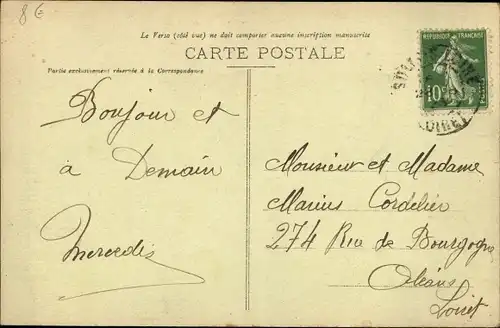 8€
Le Verso (côté vue) ne doit comporter aucune inscription manuscrite
CARTE POSTALE
Partie exclusivement réservée à la Correspondance
REPUBLIQUE FRANÇAISE
10c
LOIRET
Bonjour et
à Demain
Mercedes
Monsieur et Madame
Marius Cordelier
274 Rue de Bourgogne
Orléans
Loiret